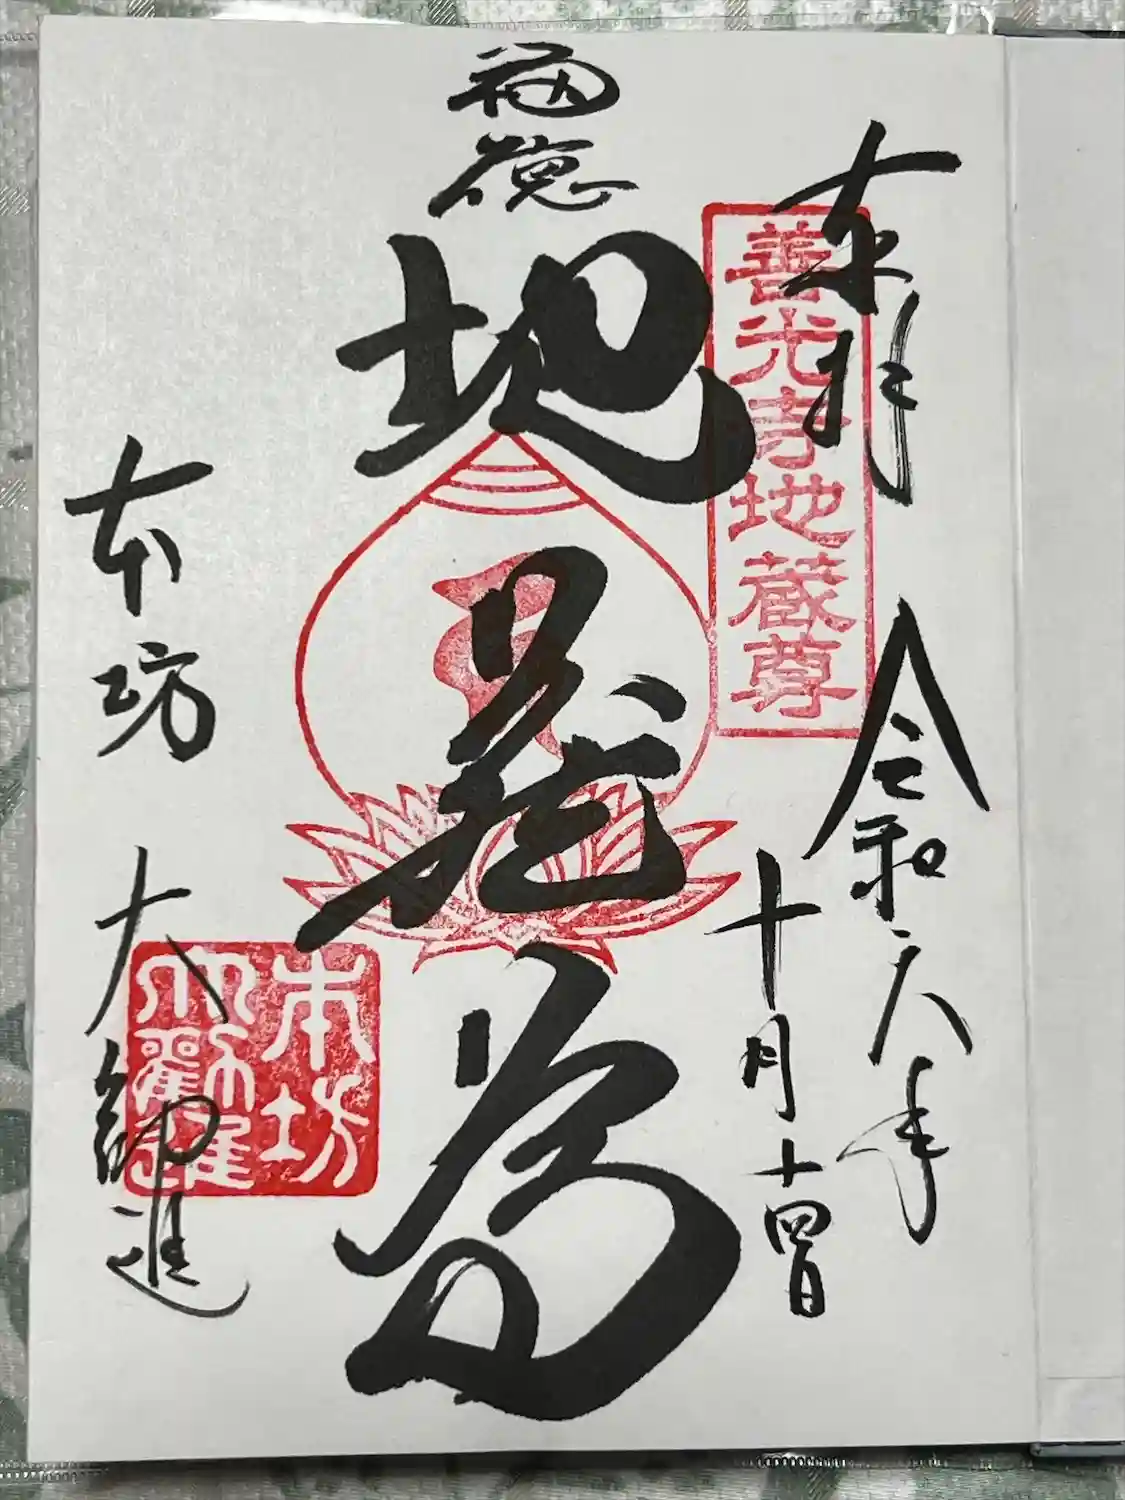 奉拝
令和六年
十月十四日
善光寺地蔵尊
福徳
地蔵尊
本坊 大勧進
本坊
大勧進